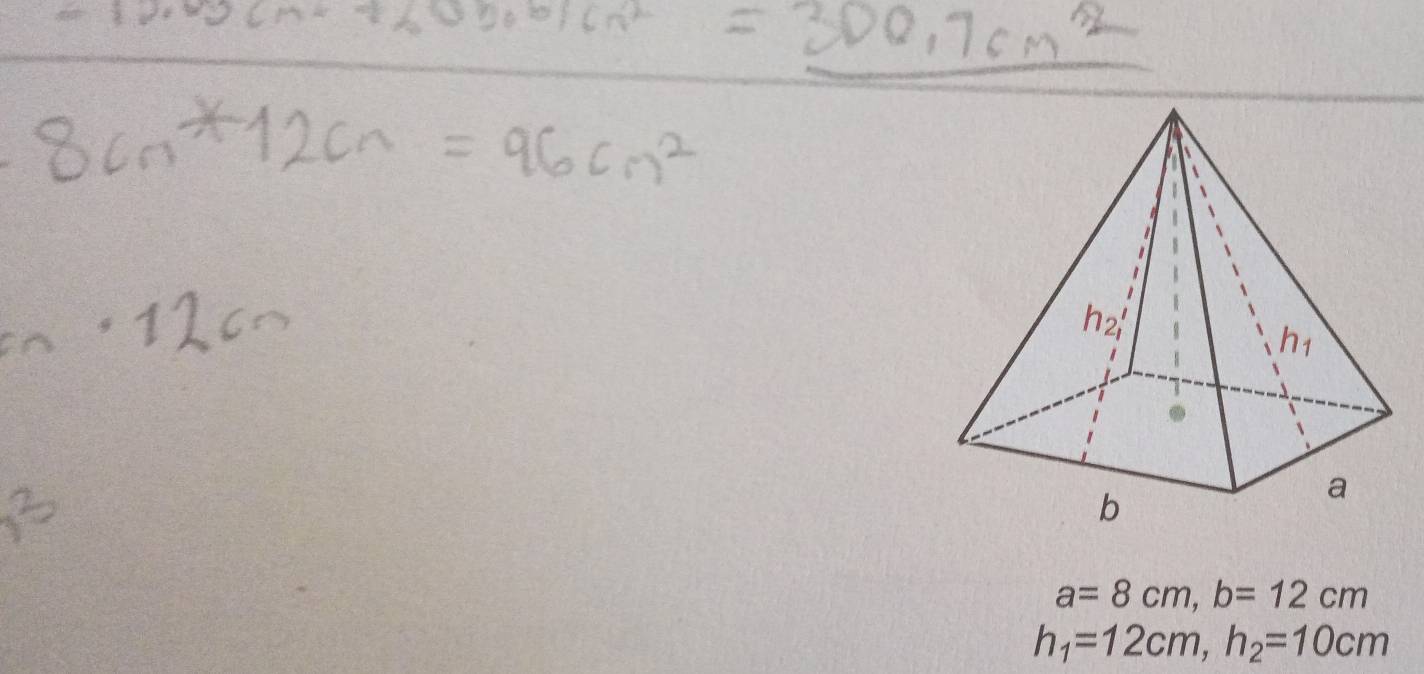 = 300,7cm²
8cm*12cm = 96cm²
· 12cm
h₂
h₁
a
b
a= 8 cm, b= 12 cm
h₁=12cm, h₂=10cm